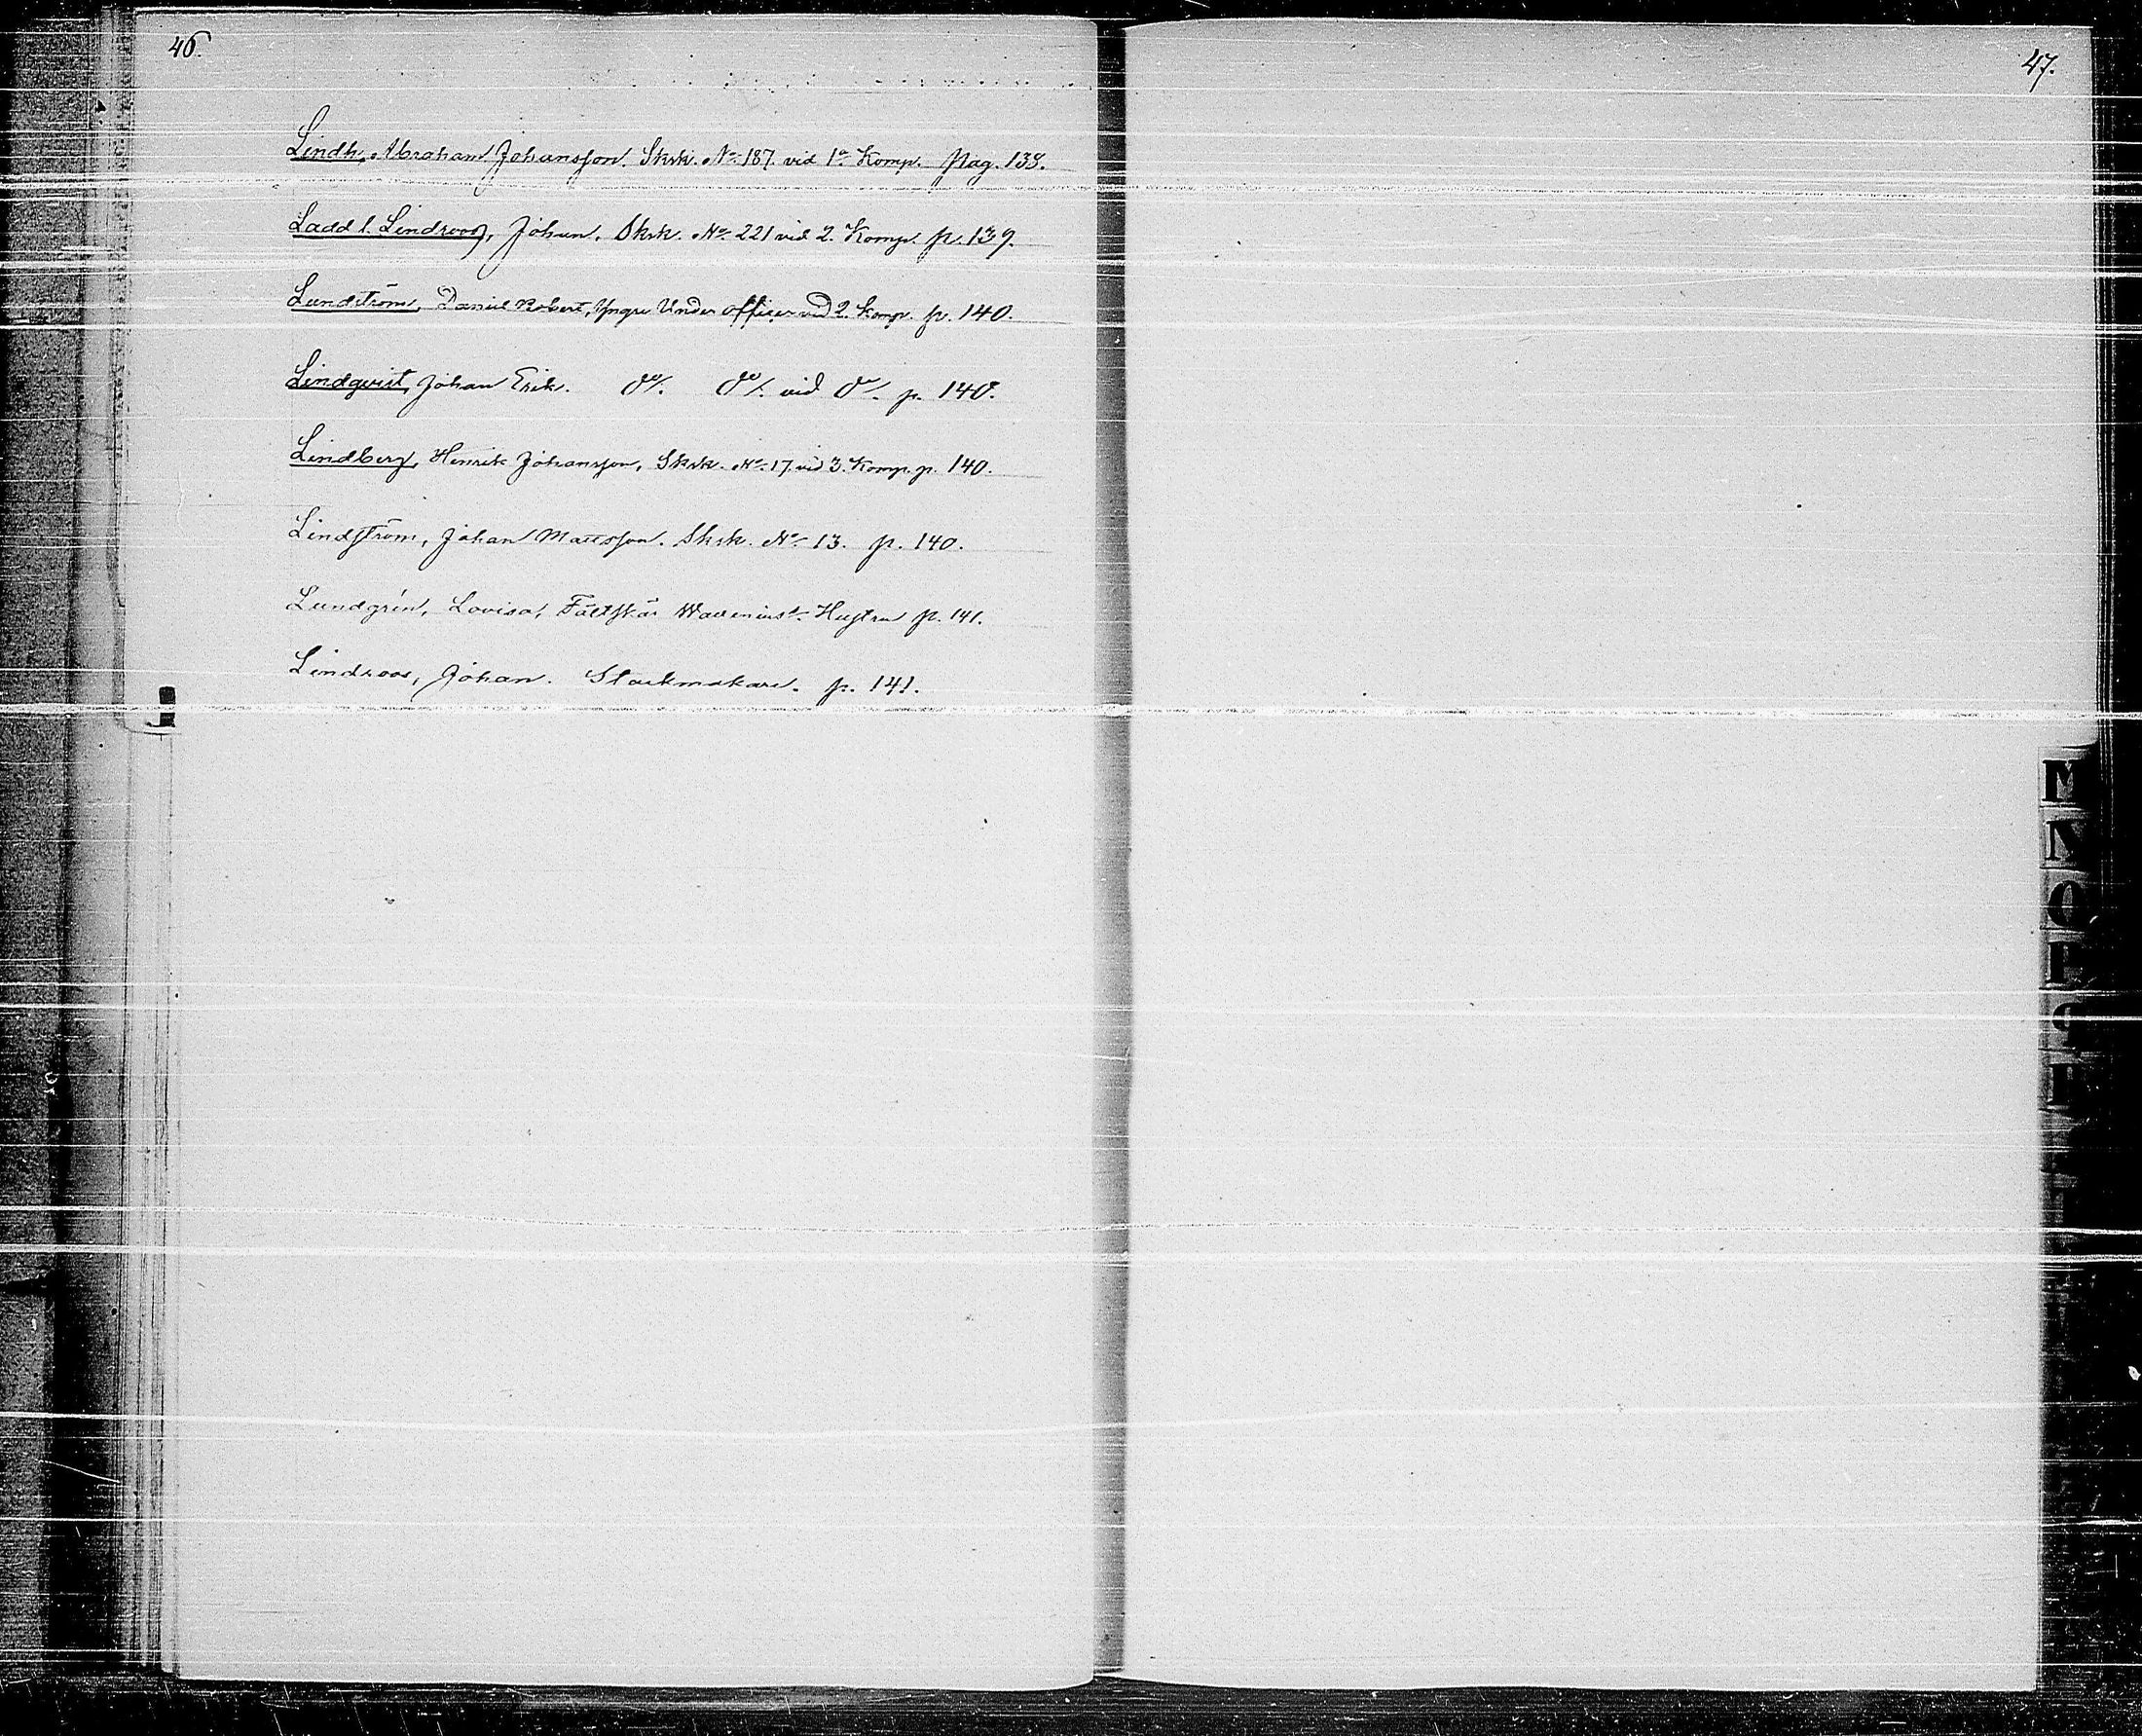 46.
47.
Lindh, Abraham Johansson. Skrk. No. 187. vid 1a Komp. Pag. 138.
Ladd l. Lindroos, Johan. Skrk. No. 221 vid 2. Komp. p. 139.
Lundström, Daniel Robert, Yngre Under officer vid 2. Komp. p. 140.
Lindqvist, Johan Erik. do/. do/. vid do/. p. 140.
Lindberg, Henrik Johansson, Skrk. No. 17 vid 3. Komp. p. 140.
Lindström, Johan Mattsson. Skrk. No. 13. p. 140.
Lundgrén, Lovisa, Fältskär Hustru p. 141.
Lindroos, Johan. Stockmakare. p. 141.
M
N
O
P